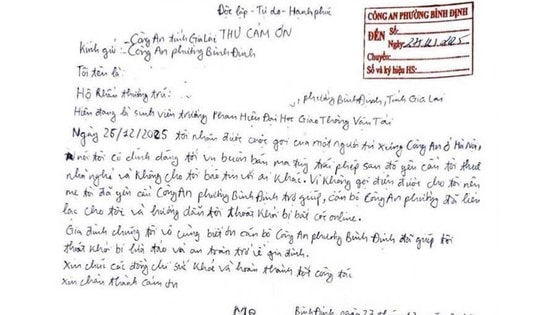 Độc lập - Tự do - Hạnh phúc
THƯ CẢM ƠN
Kính gửi: - Công An tỉnh Gia Lai
- Công An phường Bình Định
CÔNG AN PHƯỜNG BÌNH ĐỊNH
ĐẾN Số:
Ngày:
Chuyển:
Số và ký hiệu HS:
Tôi tên là:
Hộ khẩu thường trú: , phường Bình Định, Tỉnh Gia Lai
Hiện đang là sinh viên trường Phân Hiệu Đại Học Giao Thông Vận Tải
Ngày 25/12/2025 tôi nhận được cuộc gọi của một người tự xưng Công An ở Hà Nội,
nói tôi có dính dáng tới vụ buôn bán ma túy trái phép sau đó yêu cầu tôi thuê
nhà nghỉ và không cho tôi báo tin với ai khác. Vì không gọi điện được cho tôi nên
mẹ tôi đã yêu cầu Công An phường Bình Định trợ giúp, cán bộ Công An phường đã liên
lạc cho tôi và hướng dẫn tôi thoát khỏi bị bắt cóc online.
Gia đình chúng tôi vô cùng biết ơn cán bộ Công An phường Bình Định đã giúp tôi
thoát khỏi bị lừa đảo và an toàn trở về gia đình.
Xin chúc các đồng chí sức khỏe và hoàn thành tốt công tác
Xin chân thành cảm ơn
Mẹ
Bình Định, ngày 27